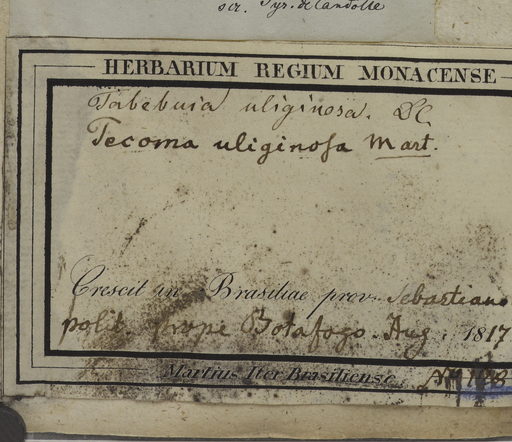 scr. Pyr. de Candolle
HERBARIUM REGIUM MONACENSE
Tabebuia uliginosa. DC.
Tecoma uliginosa Mart.
Crescit in Brasiliae prov. Sebastiano
polit. prope Botafogo. Aug. 1817
Martius Iter Brasiliense